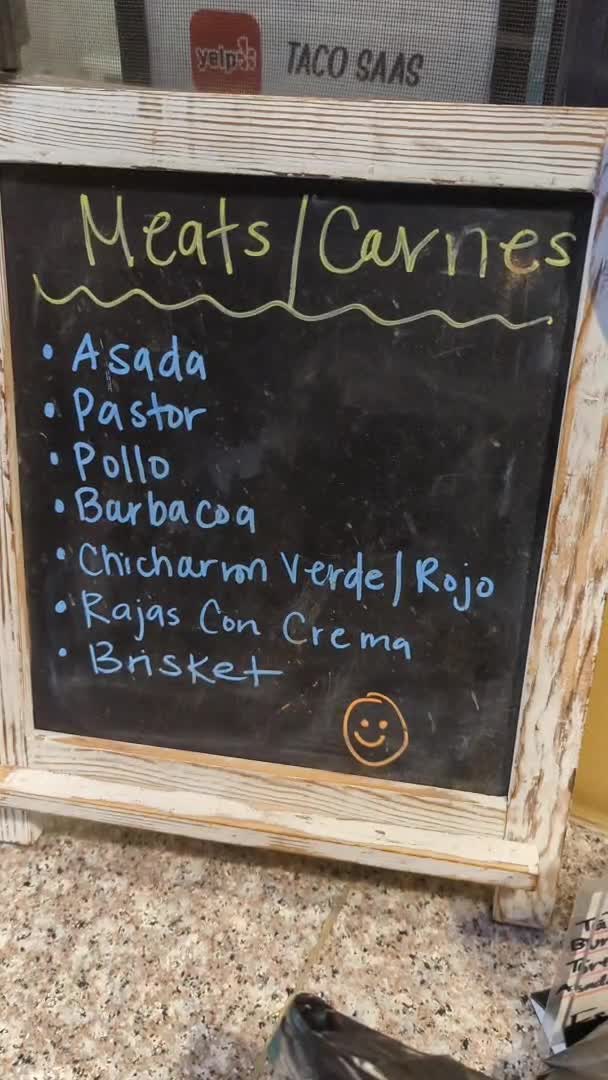 yelp TACO SAAS
Meats/Carnes
• Asada
• Pastor
• Pollo
• Barbacoa
• Chicharron Verde/Rojo
• Rajas Con Crema
• Brisket